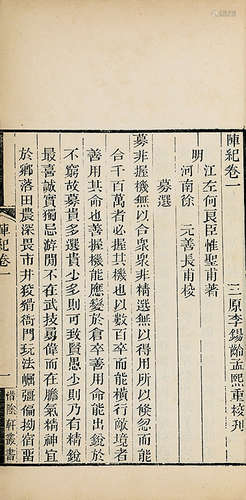 陣紀卷一
江左何良臣惟聖甫著
明
河南徐 元善長甫校
三原李錫齡孟熙重校刊
募選
募非握機無以合衆衆非精選無以得用所以倏忽而能
合千百萬者必握其機也以數百卒而能橫行敵境者
善用其命也善握機能應變於倉卒善用命能出銳於
不窮故募貴多選貴少多則可致賢愚少則乃有精銳
最喜誠實獨忌游閒不在武技勇偉而在膽氣精神宜
於鄉落田農深畏市井狡猾衙門玩法崛彊偏拗宿囂
陣紀卷一
一
惜陰軒叢書